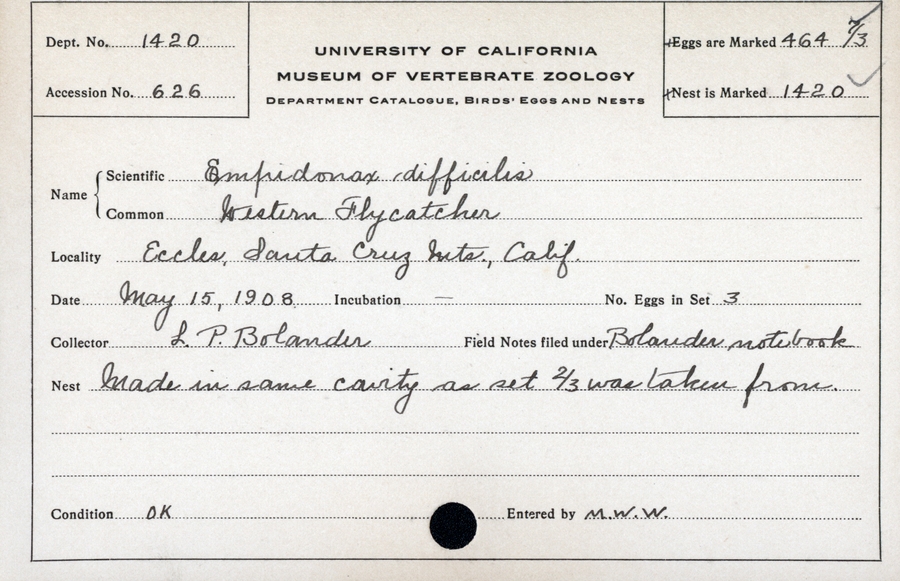 Dept. No. 1420
Accession No. 626
UNIVERSITY OF CALIFORNIA
MUSEUM OF VERTEBRATE ZOOLOGY
DEPARTMENT CATALOGUE, BIRDS' EGGS AND NESTS
Eggs are Marked 464 7/3
Nest is Marked 1420
Name
Scientific Empidonax difficilis
Common Western Flycatcher
Locality Eccles, Santa Cruz Mts., Calif.
Date May 15, 1908 Incubation — No. Eggs in Set 3
Collector L. P. Bolander Field Notes filed under Bolander notebook
Nest Made in same cavity as set 2/3 was taken from.
Condition OK Entered by M.W.W.